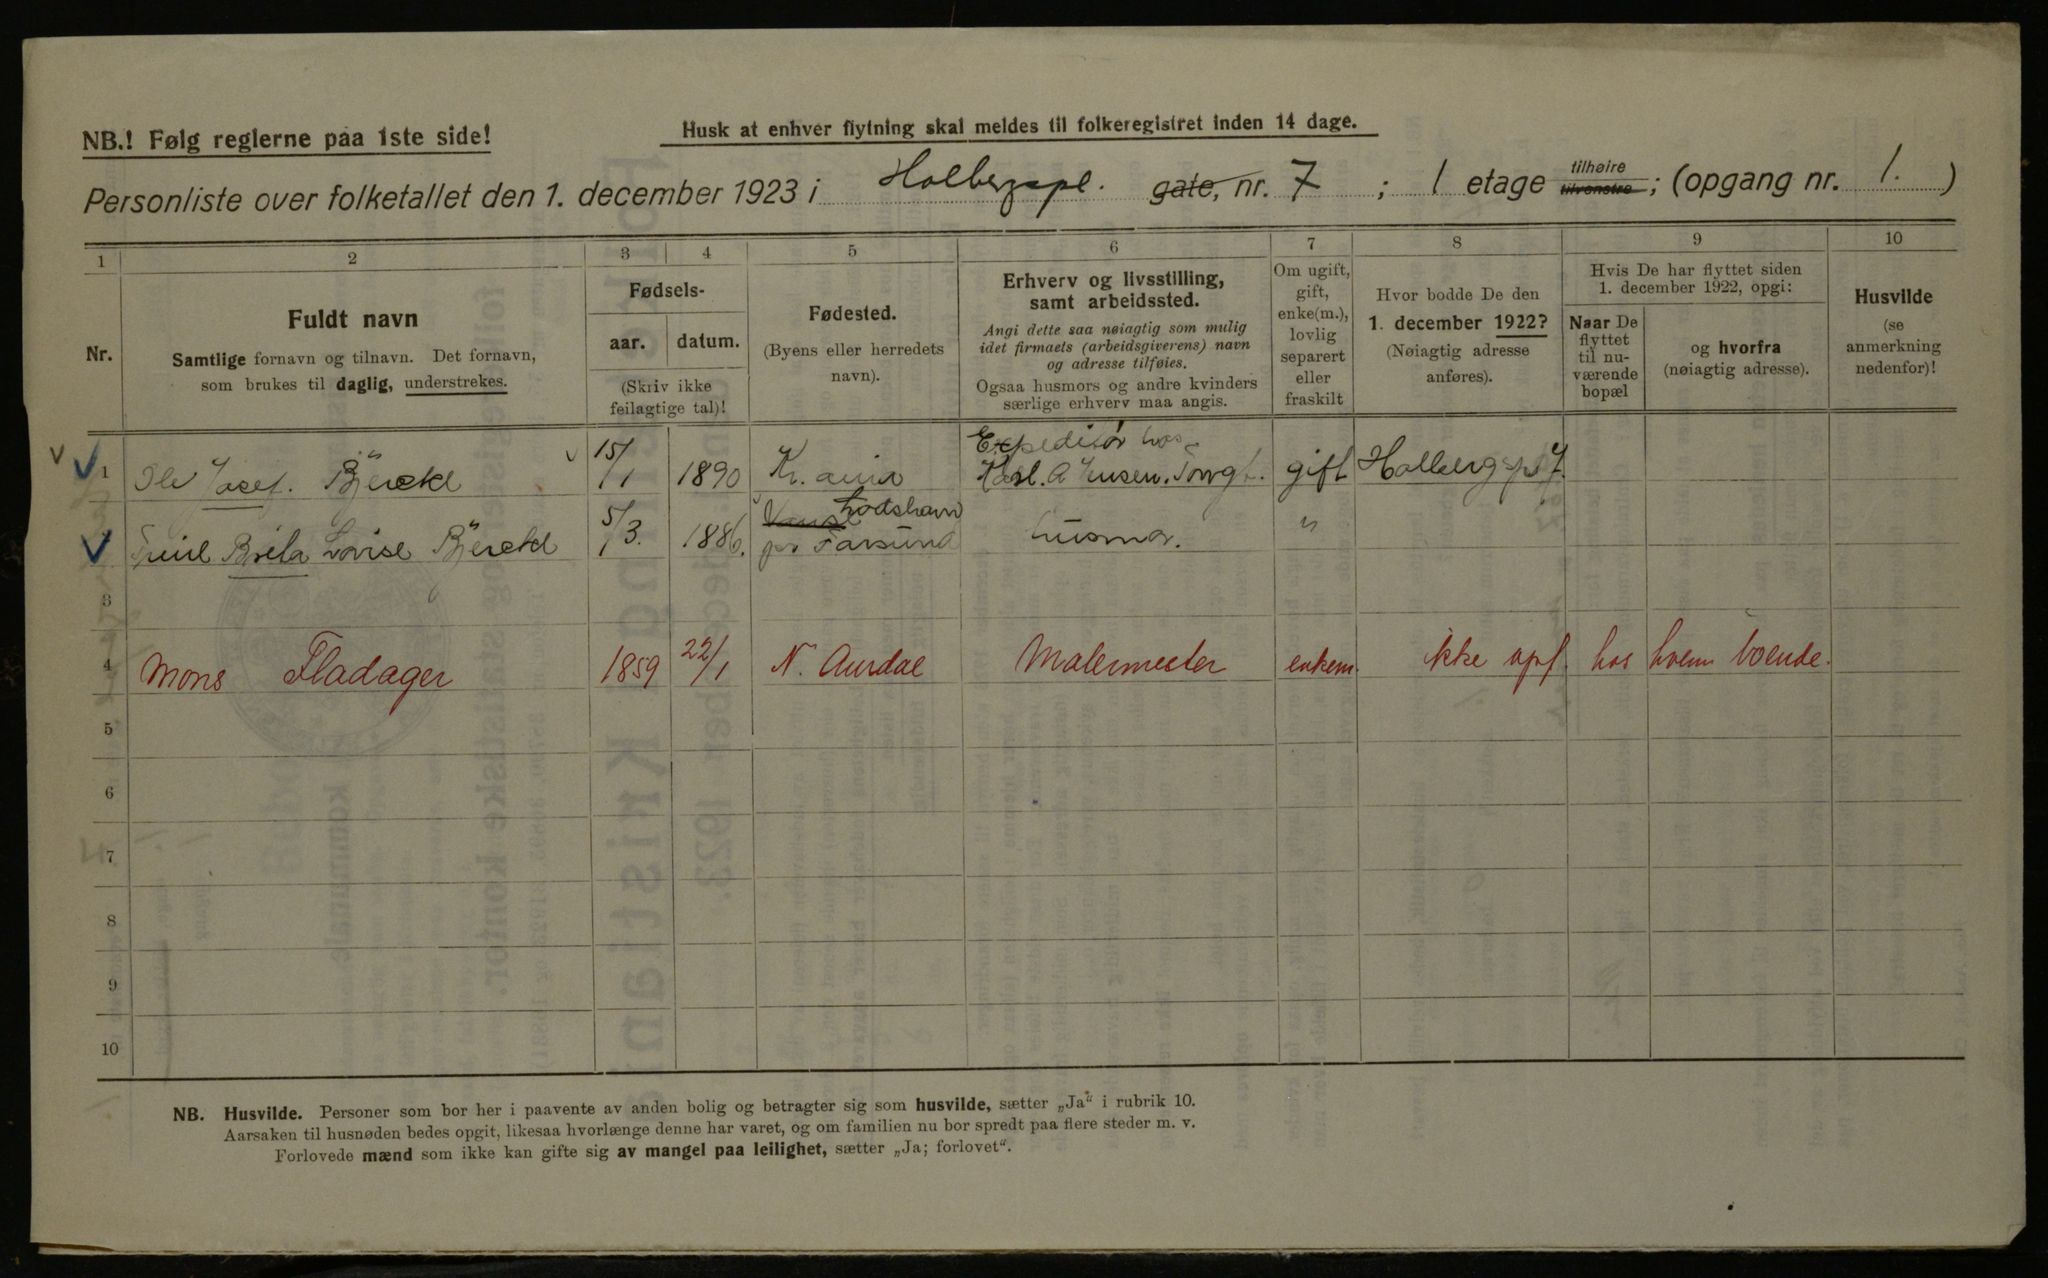 NB.! Følg reglerne paa 1ste side!
Husk at enhver flytning skal meldes til folkeregistret inden 14 dage.
Personliste over folketallet den 1. december 1923 i Holbergspl. gate, nr. 7 ; 1 etage tilhøire tilvenstre ; (opgang nr. 1. )
1 2 3 4 5 6 7 8 9 10
Nr.
Fuldt navn
Samtlige fornavn og tilnavn. Det fornavn,
som brukes til daglig, understrekes.
Fødsels-
aar. datum.
(Skriv ikke
feilagtige tal)!
Fødested.
(Byens eller herredets
navn).
Erhverv og livsstilling,
samt arbeidssted.
Angi dette saa nøiagtig som mulig
idet firmaets (arbeidsgiverens) navn
og adresse tilføies.
Ogsaa husmors og andre kvinders
særlige erhverv maa angis.
Om ugift,
gift,
enke(m.),
lovlig
separert
eller
fraskilt
Hvor bodde De den
1. december 1922?
(Nøiagtig adresse
anføres).
Hvis De har flyttet siden
1. december 1922, opgi:
Naar De
flyttet
til nu-
værende
bopæl
og hvorfra
(nøiagtig adresse).
Husvilde
(se
anmerkning
nedenfor)!
1 Ole Josef. Bjercke 15/1 1890 Kr.ania Expeditør hos Karl. A Torvgt. gift Holbergspl 7
Brita Lovise Bjercke 5/3. 1886. Lodshavn pr Farsund husmor. "
3
4 Mons Fladager 1859 22/1 N. Aurdal Malermester enkem. ikke opf. hos hvem boende.
5
6
7
8
9
10
NB. Husvilde. Personer som bor her i paavente av anden bolig og betragter sig som husvilde, sætter „Ja“ i rubrik 10.
Aarsaken til husnøden bedes opgit, likesaa hvorlænge denne har varet, og om familien nu bor spredt paa flere steder m. v.
Forlovede mænd som ikke kan gifte sig av mangel paa leilighet, sætter „Ja; forlovet“.